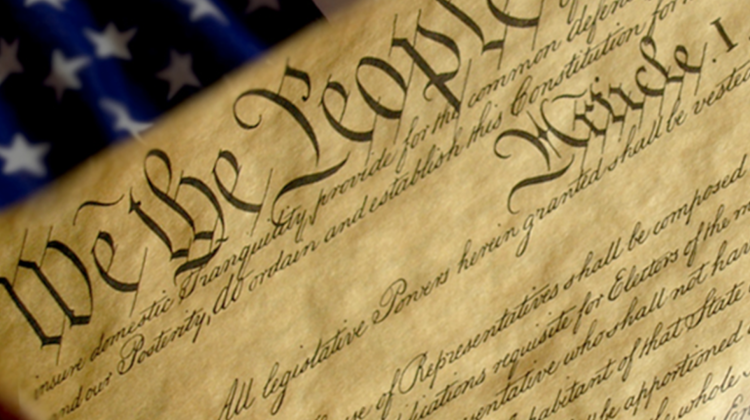 We the People
insure domestic Tranquility, provide for the common defen
and our Posterity, do ordain and establish this Constitution for
Article. I
All legislative Powers herein granted shall be veste
se of Representatives shall be composed
ications requisite for Electors of the m
sentative who shall not hav
habitant of that State
be apportioned
whole